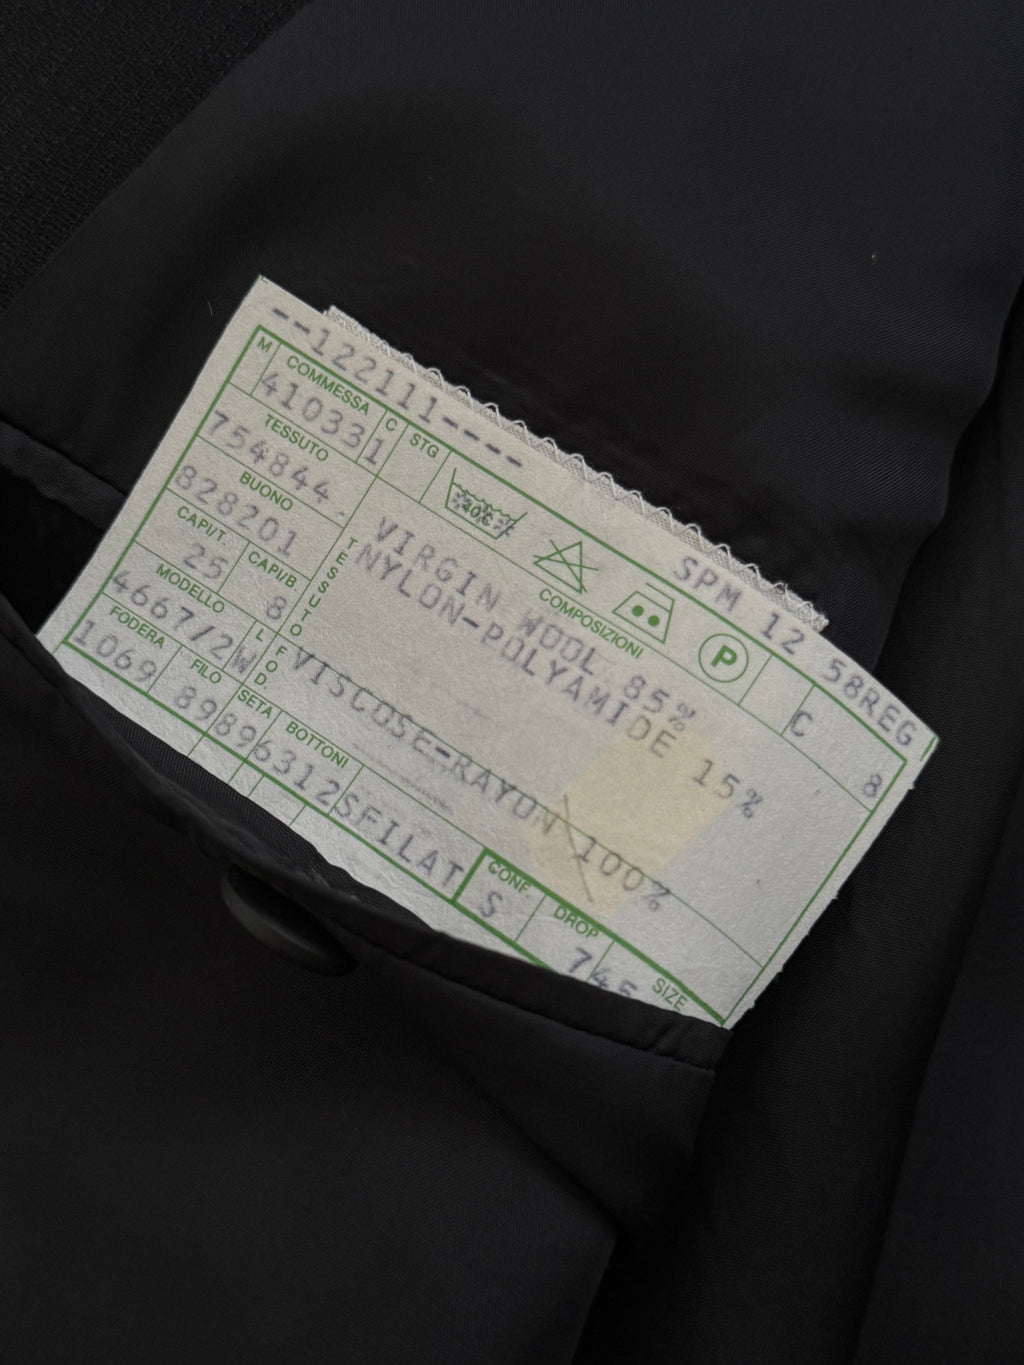 --122111----
SPM 12 58REG
M COMMESSA C STG
410331
C 8
TESSUTO
754844.
40°C
P
COMPOSIZIONI
BUONO
828201
TESSUTO
VIRGIN WOOL 85%
NYLON-POLYAMIDE 15%
CAPI/T. CAPI/B
25 8
MODELLO
4667/2W
L FOD.
VISCOSE-RAYON 100%
FODERA FILO SETA BOTTONI
1069 8989 6312 SFILAT
CONF. DROP SIZE
S 7